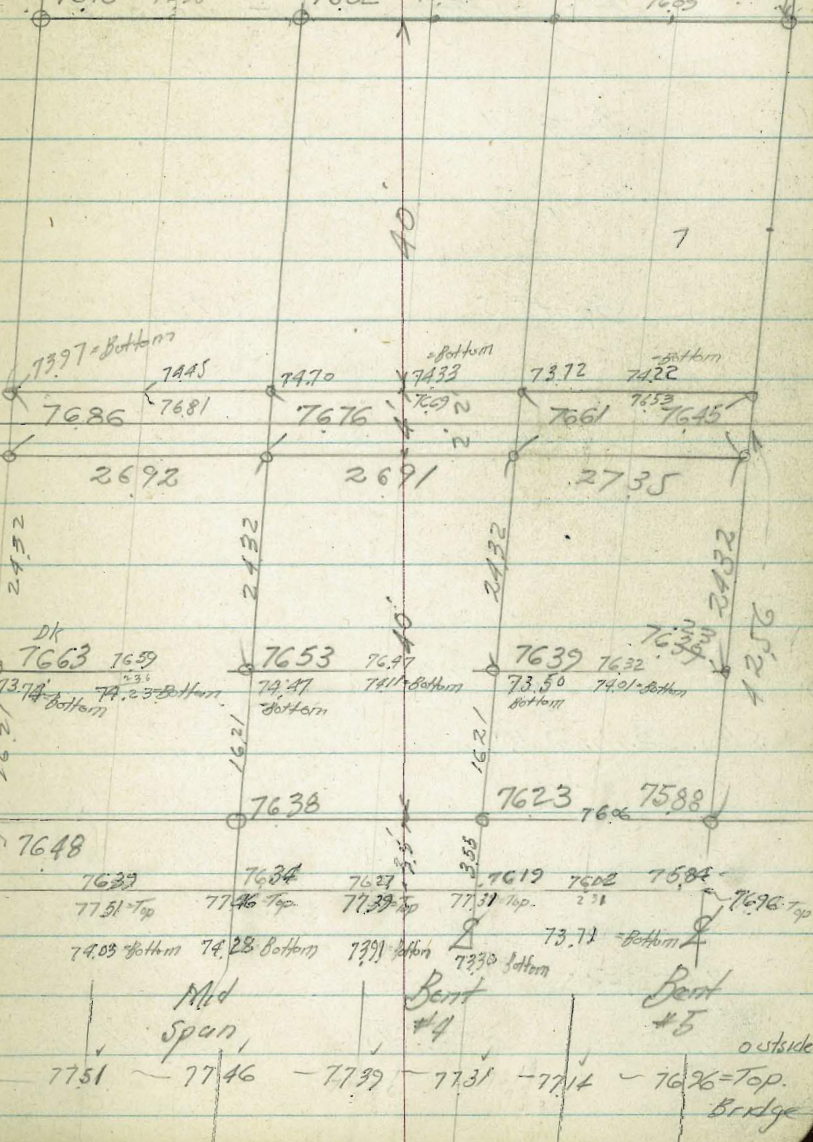 40
7
7397=Bottom
7445 7470 =Bottom 7433 7372 =Bottom 7422
7686 7681 7676 7669 7661 7653 7645
24' 2'2
2692 2691 2735
2432 2432 2432 2432
40'
1256
DK
7663 7659 7653 7647 7639 7632
74.23=Bottom 74.47 7411=Bottom 73.50 7401=Bottom
=Bottom -Bottom Bottom
1621 1621 1621
7638 7623 7606 7588
7648 355
7639 7634 7627 7619 7602 7584
7751=Top 7746=Top 7739=Top 7731 Top 231 7696=Top
74.03=Bottom 74.28 Bottom 7391=Bottom 7330 Bottom 73.71 =Bottom
Mid Span
Bent #4
Bent #5
outside
7751 – 7746 – 7739 – 7731 – 7714 – 7696=Top.
Bridge